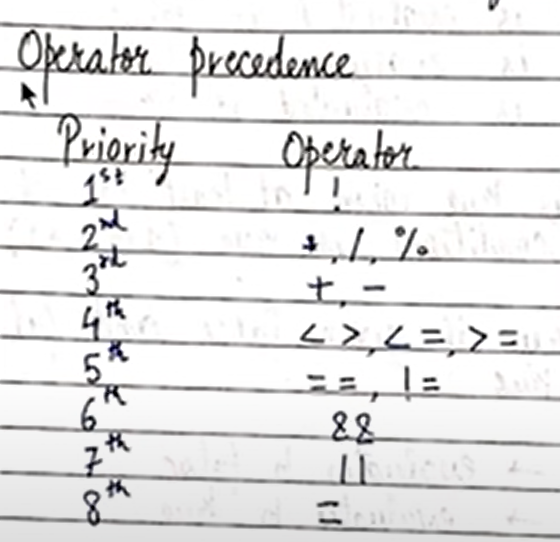 Operator precedence
Priority Operator
1st !
2nd *, /, %
3rd +, -
4th < >, < =, > =
5th = =, ! =
6th &&
7th ||
8th =